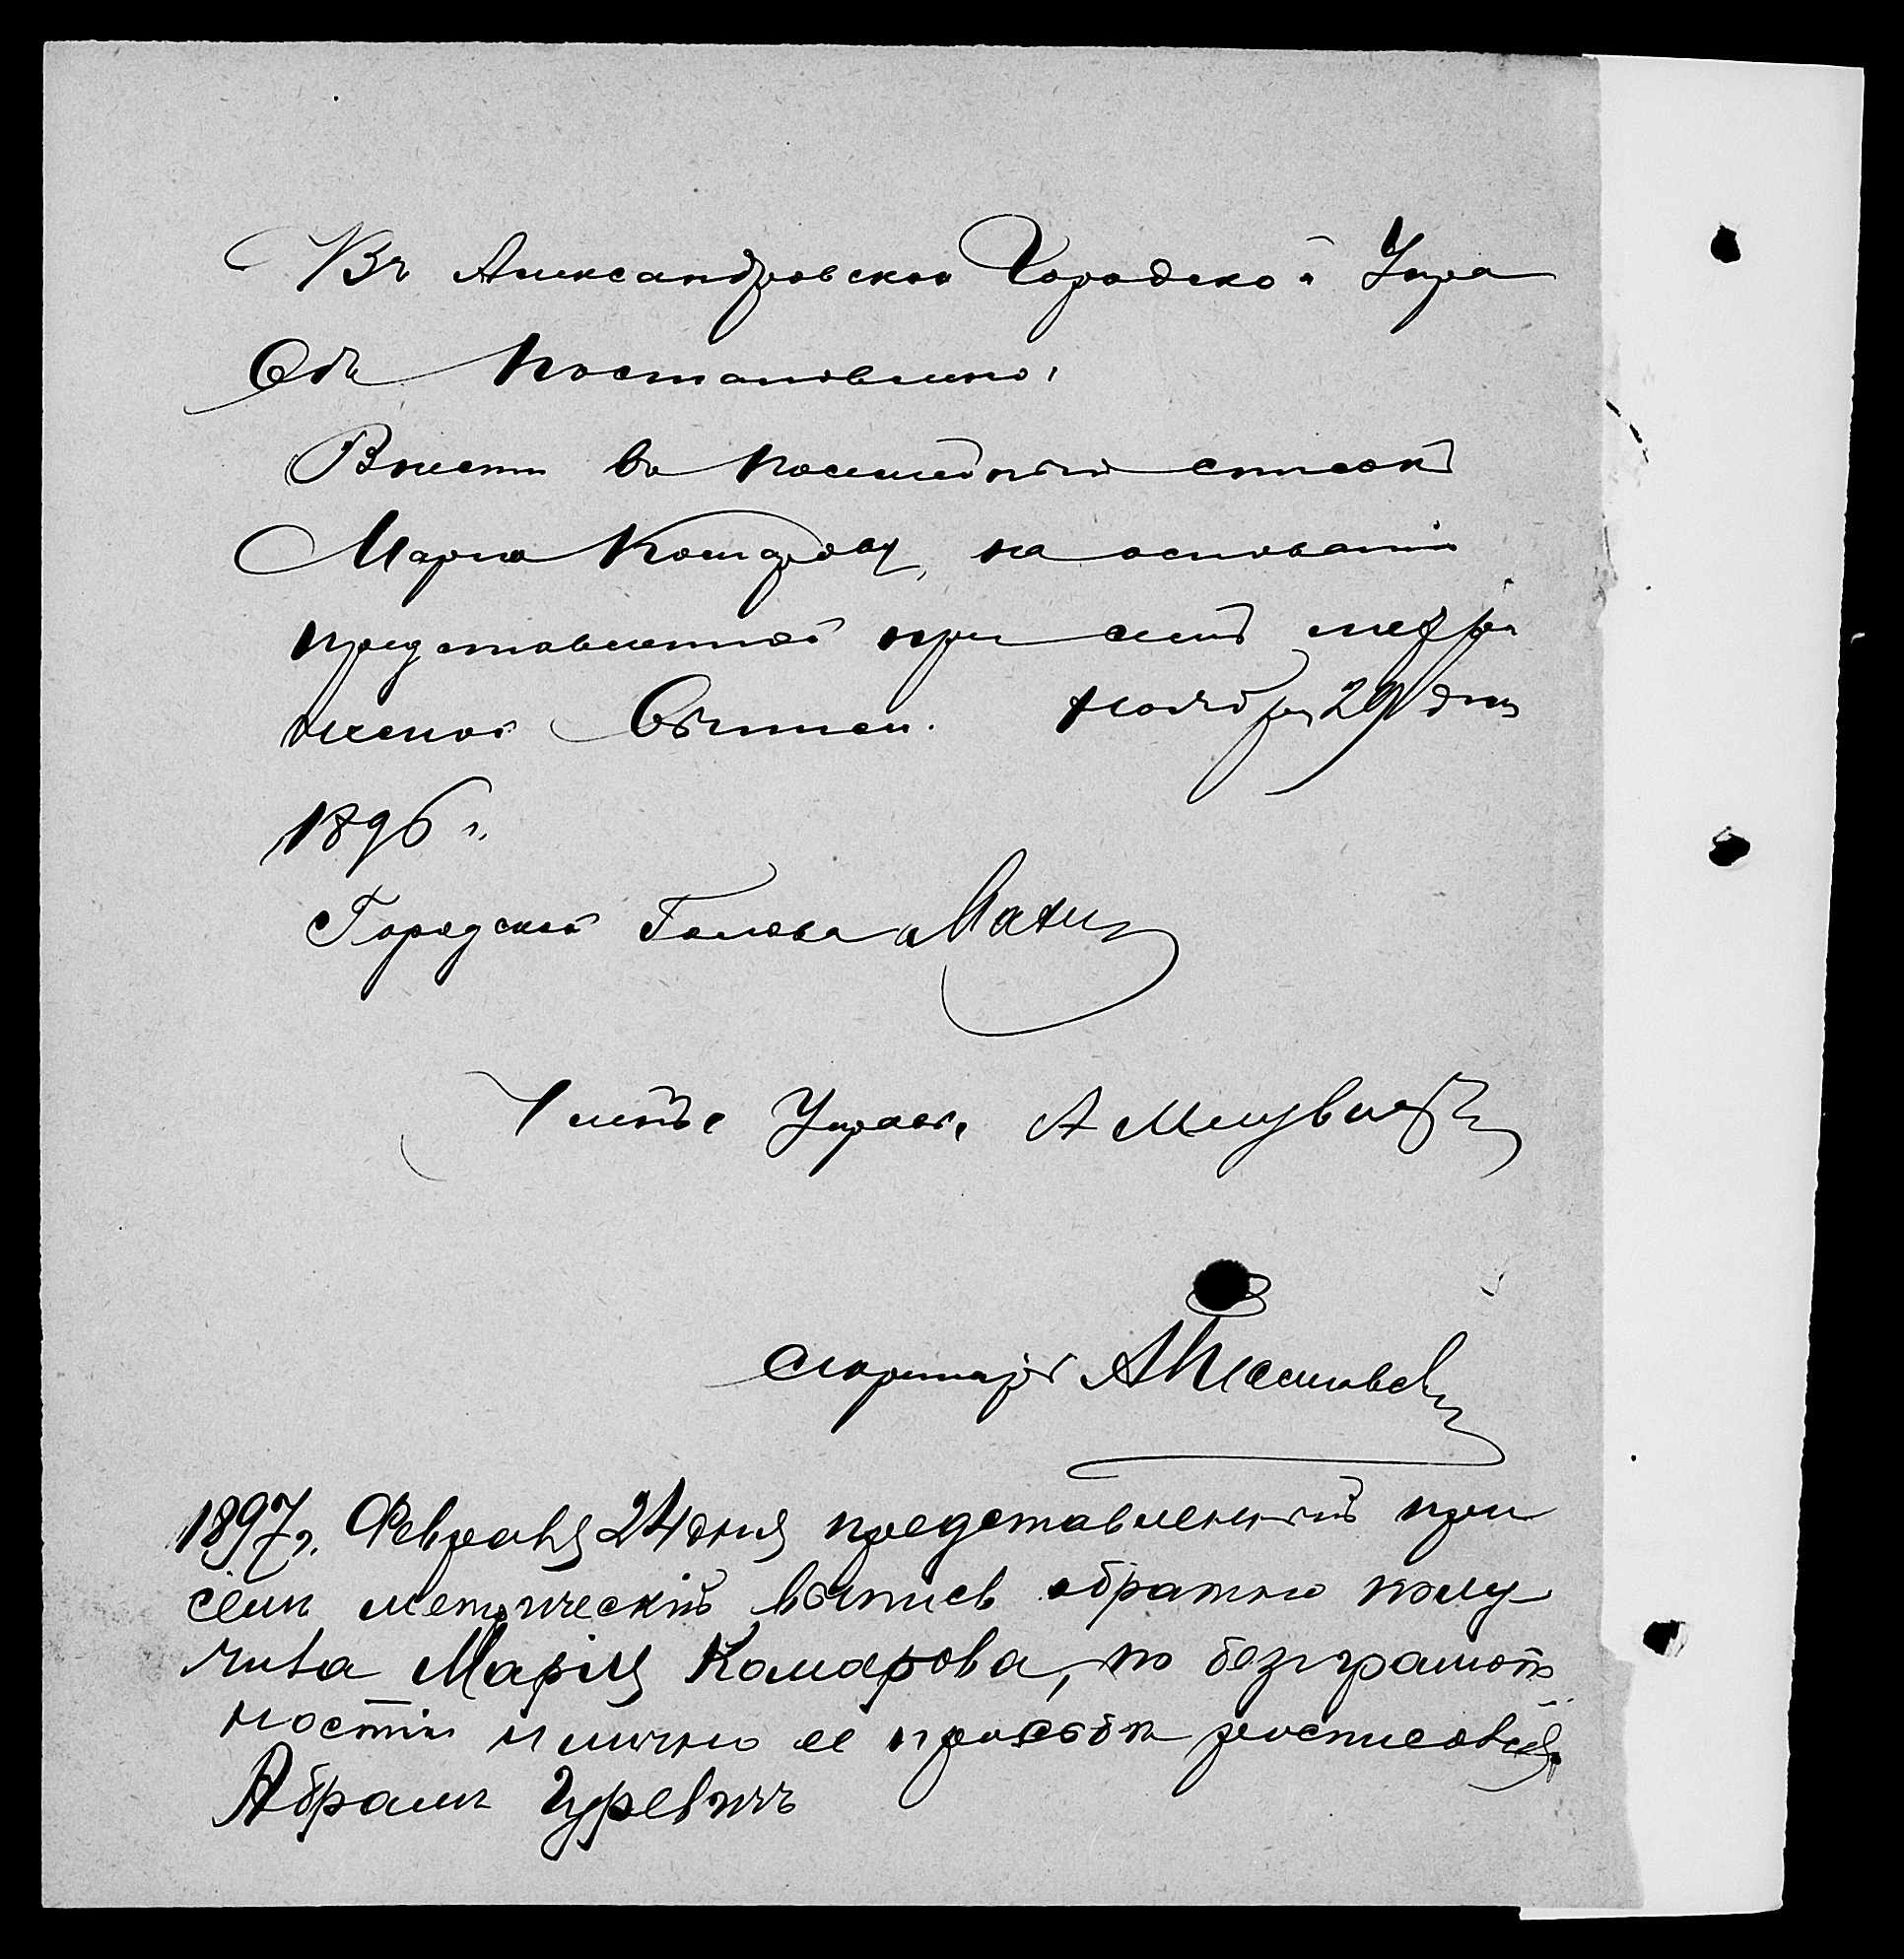 Въ Александровской Городской Упра
вѣ Постановлено:
Внести въ посемейный списокъ
Марію Комарову, на основаніи
представленной при семъ метри
ческой выписи. Ноября 29 дня
1896 г.
Городской Голова
Членъ Управы А
Секретарь А
1897 г. Февраля 24 дня представленный при
семъ метрическій выпись обратно полу
чила Марія Комарова, по безграмот
ности и лично ее просьбѣ росписовался
Абрамъ Гуревичъ